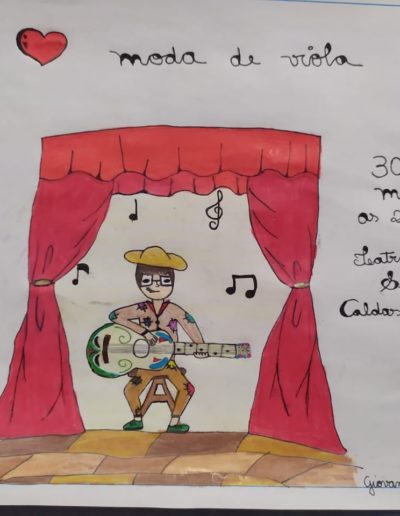 moda de viola
30
m
as 2
Teatr
S
Caldas
Giovan